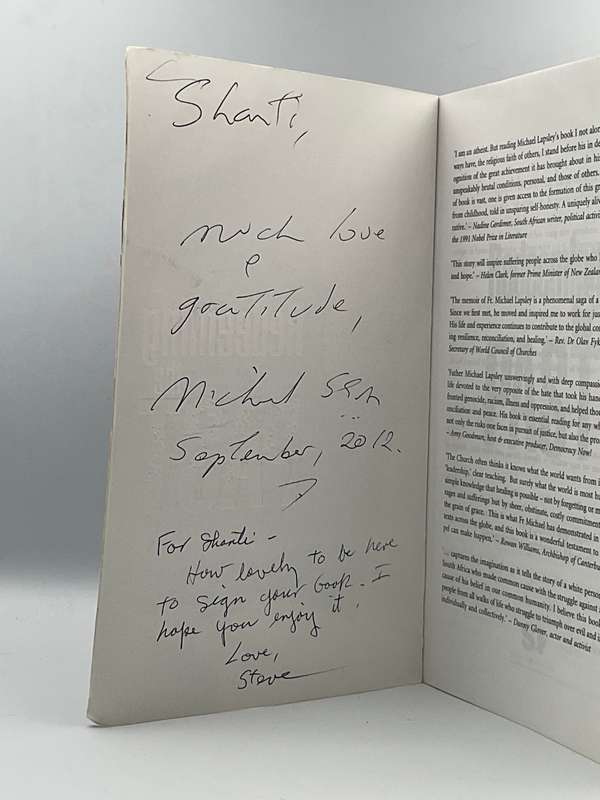 Shanti,
much love
&
gratitude,
Michael SSM
September, 2012.
For Shanti -
How lovely to be here
to sign your book. I
hope you enjoy it.
Love,
Steve
'I am an atheist. But reading Michael Lapsley's book I not alon
ways have, the religious faith of others, I stand before his in de
ognition of the great achievement it has brought about in his
unspeakably brutal conditions, personal, and those of others.
of book is vast, one is given access to the formation of this gr
from childhood, told in unsparing self-honesty. A uniquely aliv
rative.' – Nadine Gordimer, South African writer, political activi
the 1991 Nobel Prize in Literature
'This story will inspire suffering people across the globe who
and hope.' – Helen Clark, former Prime Minister of New Zealan
'The memoir of Fr. Michael Lapsley is a phenomenal saga of a
Since we first met, he moved and inspired me to work for jus
His life and experience continues to contribute to the global co
ing resilience, reconciliation, and healing.' – Rev. Dr Olav Fyk
Secretary of World Council of Churches
'Father Michael Lapsley unswervingly and with deep compassi
life devoted to the very opposite of the hate that took his han
fronted genocide, racism, illness and oppression, and helped thou
conciliation and peace. His book is essential reading for any wh
not only the risks one faces in pursuit of justice, but also the pro
– Amy Goodman, host & executive producer, Democracy Now!
'The Church often thinks it knows what the world wants from i
'leadership,' clear teaching. But surely what the world is most hu
simple knowledge that healing is possible – not by forgetting or m
rages and sufferings but by sheer, obstinate, costly commitment
the grain of grace. This is what Fr Michael has demonstrated in
texts across the globe, and this book is a wonderful testament to
yet can make happen.' – Rowan Williams, Archbishop of Canterbur
'... captures the imagination as it tells the story of a white perso
South Africa who made common cause with the struggle against
cause of his belief in our common humanity. I believe this book
people from all walks of life who struggle to triumph over evil and i
individually and collectively.' – Danny Glover, actor and activist